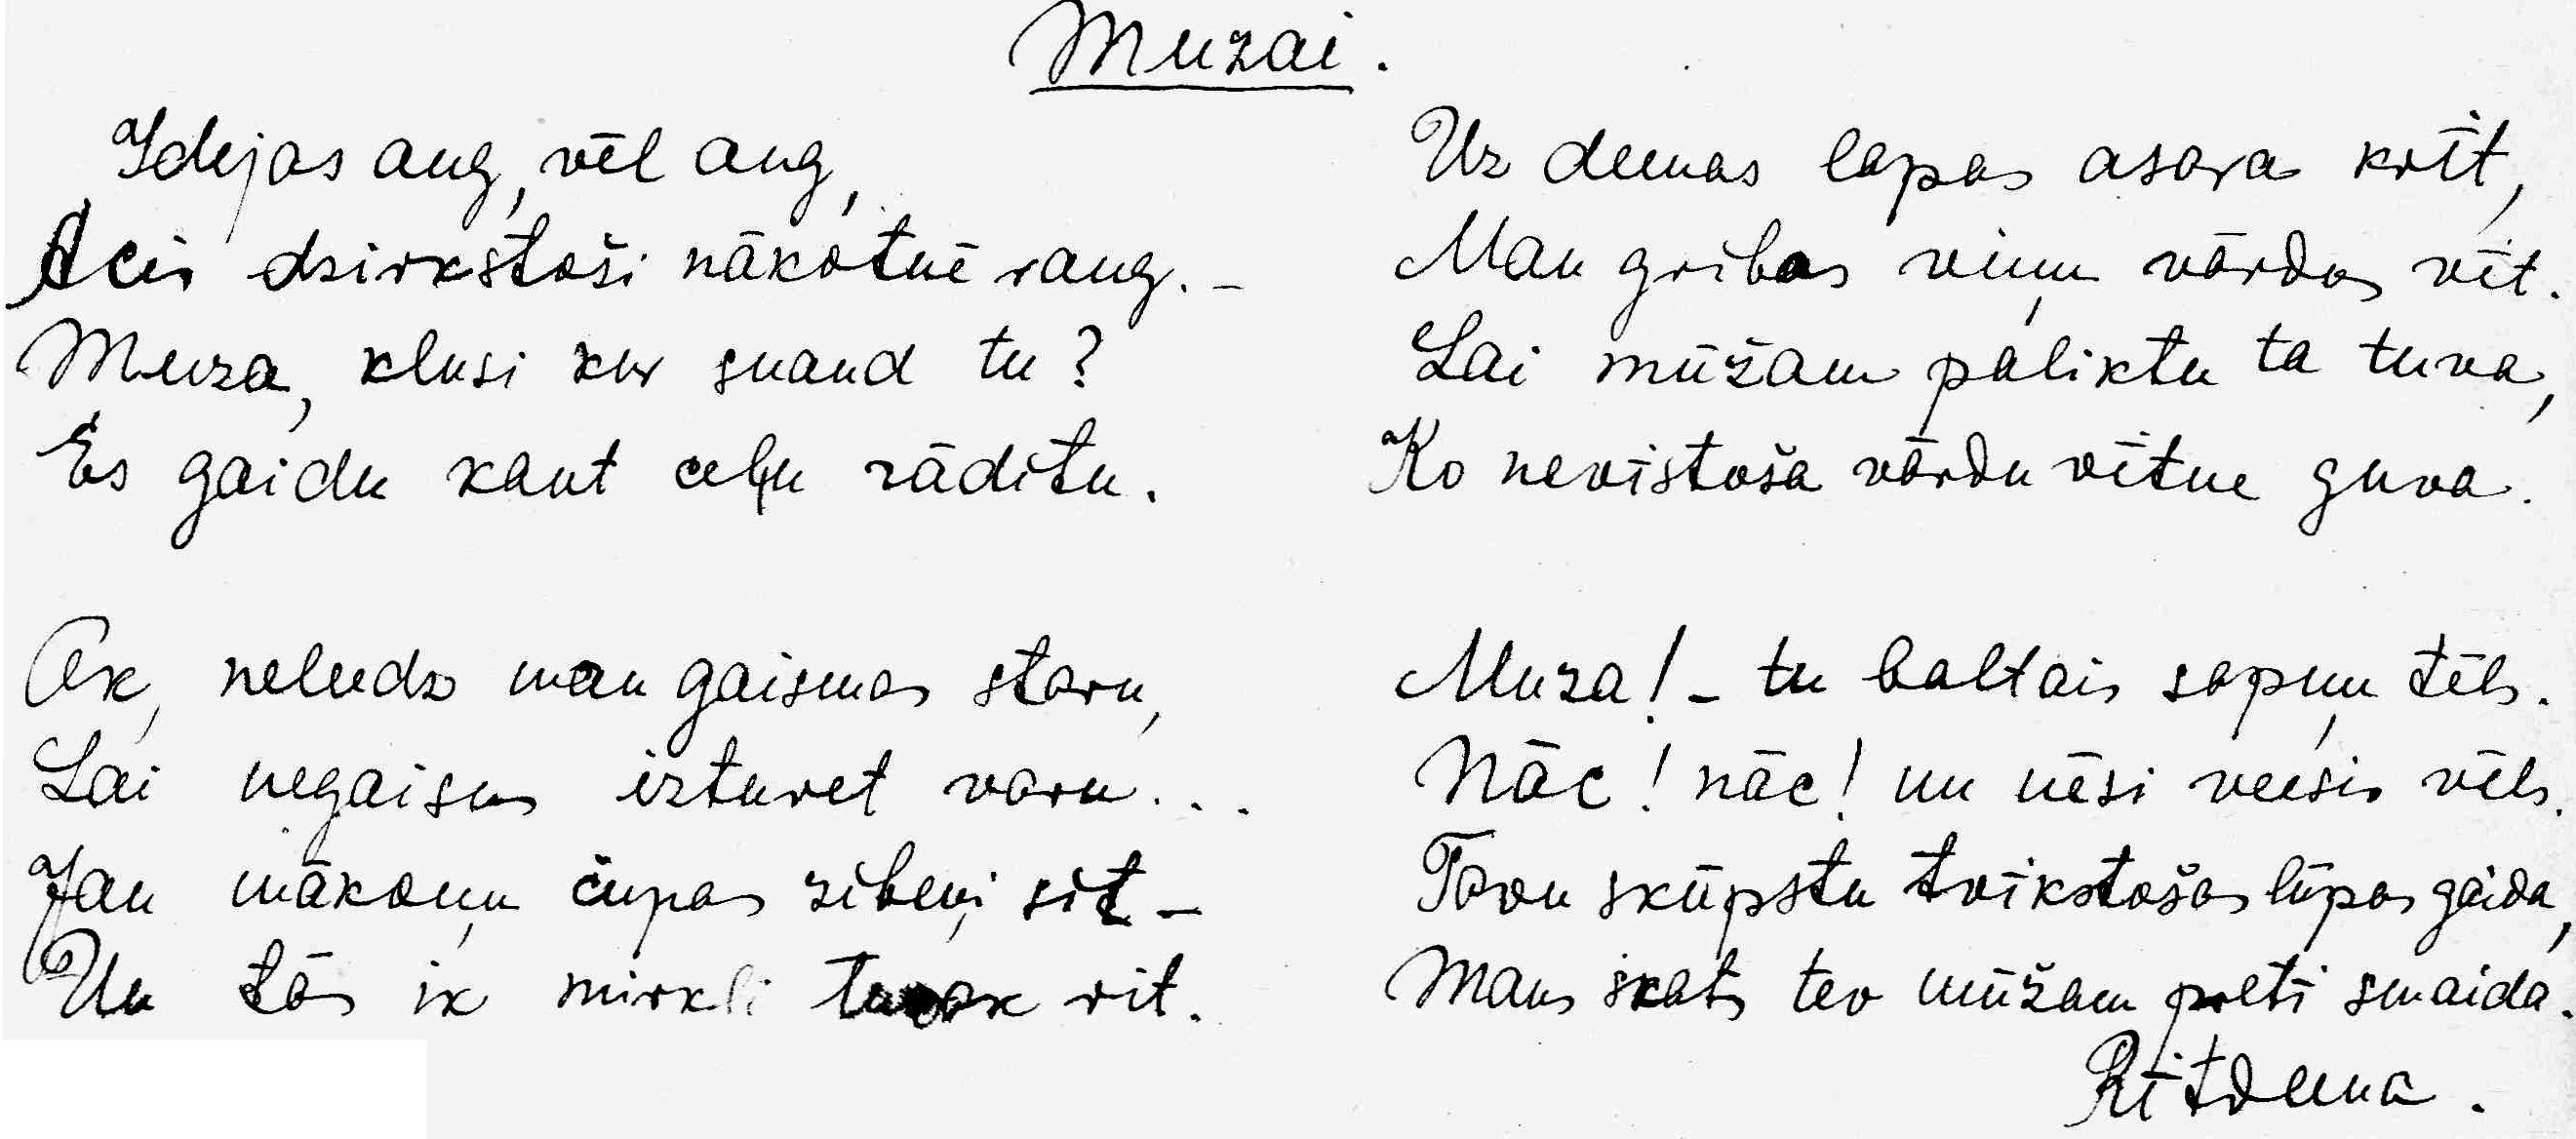 Muzai.
Idejas aug, vēl aug,
Acis dzirkstoši nākotnē raug. -
Muza, klusi kur snaud tu?
Es gaidu kaut ceļu rādītu.
Ak, neleedz man gaismas staru,
Lai negaisus izturet varu...
Jau mākoņu čupas zibeņi sit -
Un tās ik mirkli tuvak rit.
Uz deenas lapas asara krīt,
Man gribas viņu vārdos vīt.
Lai mūžam paliktu ta tuva,
Ko nevīstoša vārdu vītne guva.
Muza! - tu baltais sapņu tēls.
Nāc! nāc! un nēsi veesis vēls.
Tavu skūpstu tvīkstošas lūpas gaida,
Mans skats tev mūžam pretī smaida.
Rītdeena.